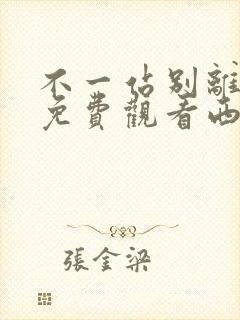 不一估别離
免費觀看西
張金梁